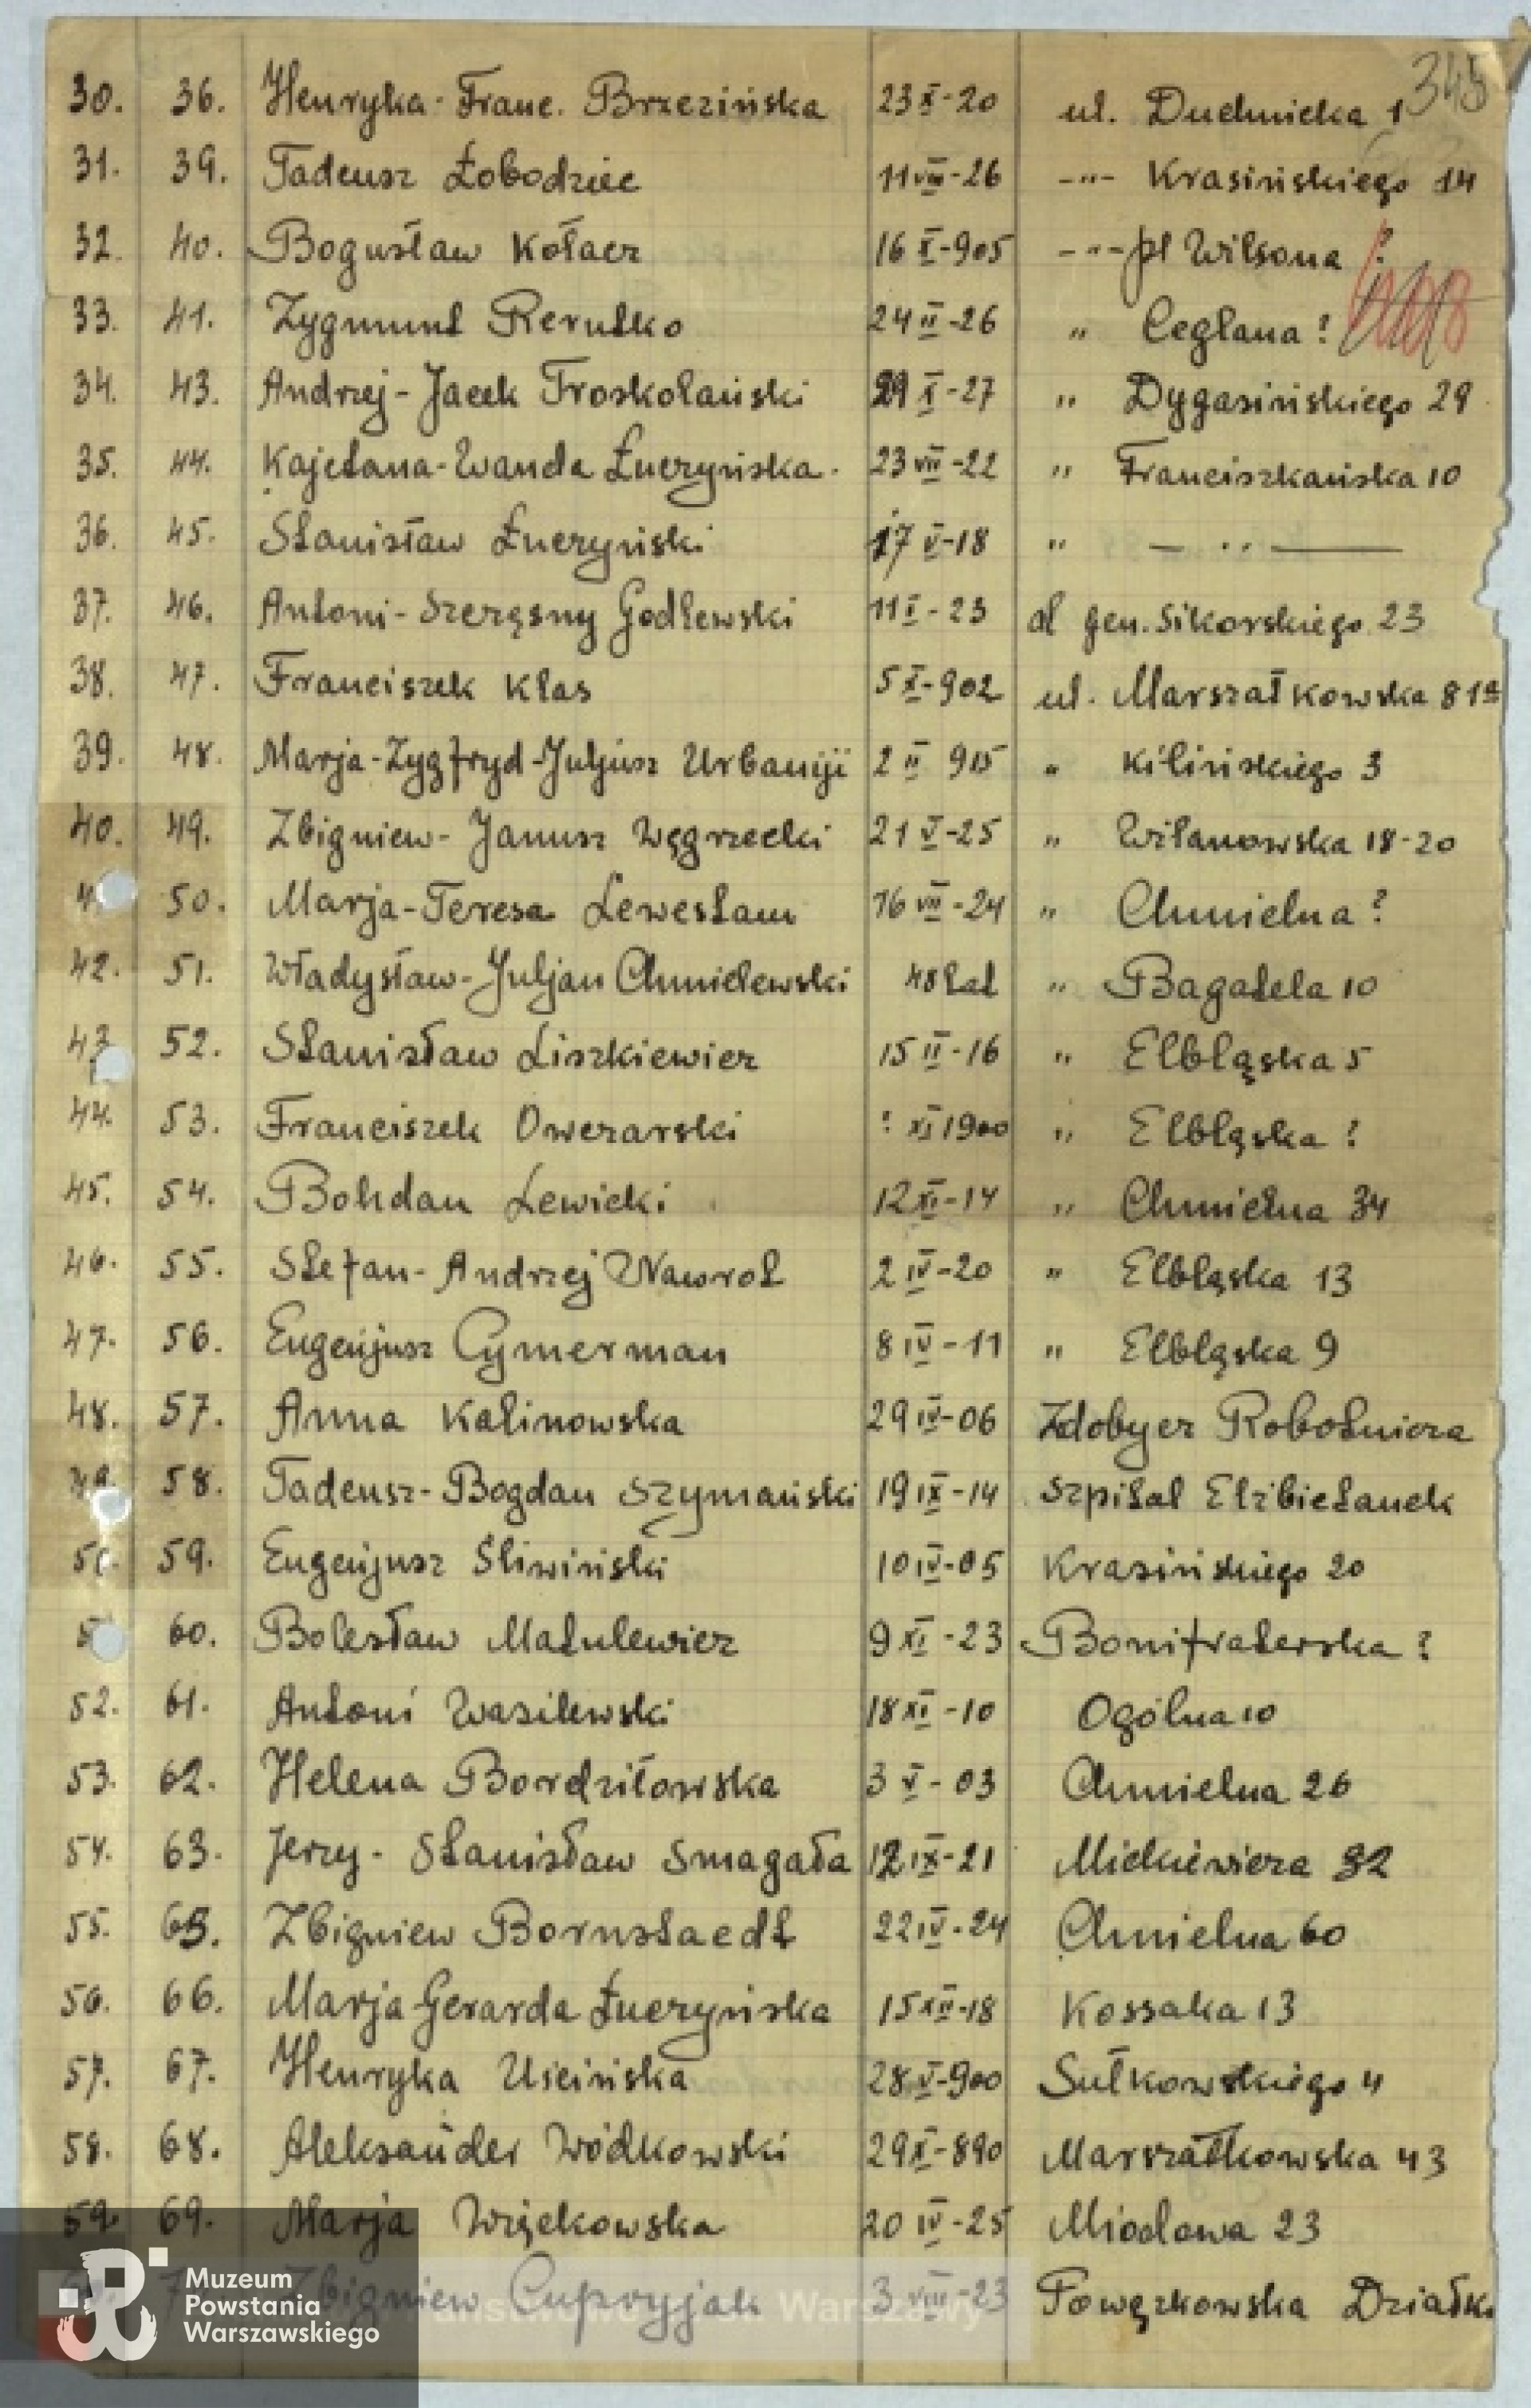 345
30. 36. Henryka-Franc. Brzezińska 23 X-20 ul. Duchnicka 1
31. 39. Tadeusz Łobodziec 11 VIII-26 -"- Krasińskiego 14
32. 40. Bogusław Kołacz 16 X-905 -"- pl Wilsona ?
33. 41. Zygmunt Rerutko 24 II-26 " Ceglana ?
34. 43. Andrzej-Jacek Troskolański 29 X-27 " Dygasińskiego 29
35. 44. Kajetana-Wanda Łuczyńska 23 VII-22 " Franciszkańska 10
36. 45. Stanisław Łuczyński 17 V-18 " — " —
37. 46. Antoni-Szczęsny Godlewski 11 I-23 al gen. Sikorskiego 23
38. 47. Franciszek Kłas 5 X-902 ul. Marszałkowska 81a
39. 48. Marja-Zygfryd-Juljusz Urbanyi 2 II 915 " Kilińskiego 3
40. 49. Zbigniew-Janusz Węgrzecki 21 V-25 " Wilanowska 18-20
4 50. Marja-Teresa Lewestam 16 VII-24 " Chmielna ?
42. 51. Władysław-Juljan Chmielewski 48 lat " Bagatela 10
43 52. Stanisław Liszkiewicz 15 II-16 " Elbląska 5
44. 53. Franciszek Owczarski ? XI 1900 " Elbląska ?
45. 54. Bohdan Lewicki 12 XI-14 " Chmielna 34
46. 55. Stefan-Andrzej Nawrot 2 IV-20 " Elbląska 13
47. 56. Eugenjusz Cymerman 8 IV-11 " Elbląska 9
48. 57. Anna Kalinowska 29 IV-06 Zdobycz Robotnicza
49. 58. Tadeusz-Bogdan Szymański 19 IX-14 Szpital Elżbietanek
50. 59. Eugenjusz Śliwiński 10 IV-05 Krasińskiego 20
5 60. Bolesław Matulewicz 9 XI-23 Bonifraterska ?
52. 61. Antoni Wasilewski 18 XI-10 Ogólna 10
53. 62. Helena Bordziłowska 3 V-03 Chmielna 26
54. 63. Jerzy-Stanisław Smagała 12 IX-21 Mickiewicza 32
55. 65. Zbigniew Bornstaedt 22 IV-24 Chmielna 60
56. 66. Marja Gerarda Łuczyńska 15 XII-18 Kossaka 13
57. 67. Henryka Uścińska 28 V-900 Sułkowskiego 4
58. 68. Aleksander Wódkowski 29 X-890 Marszałkowska 43
59. 69. Marja Więckowska 20 IV-25 Miodowa 23
Zbigniew Cupryjak 3 VIII-23 Powązkowska Działki
Muzeum
Powstania
Warszawskiego